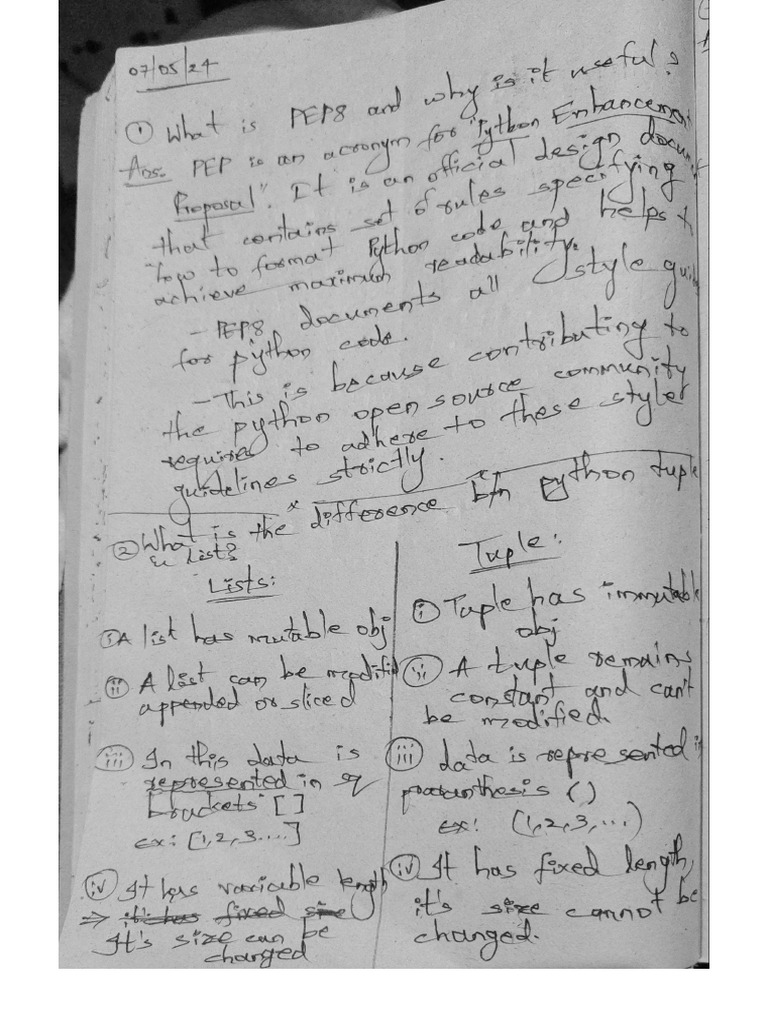 07/05/24
① What is PEP8 and why is it useful?
Ans. PEP is an acronym for "Python Enhancement
Proposal". It is an official design docum
that contains set of rules specifying
"how to format Python code and helps t
achieve maximum readability.
- PEP8 documents all style gui
for python code.
- This is because contributing to
the python open source community
requires to adhere to these styler
guidelines strictly.
② What is the difference b/n python tuple
& List?
Lists:
① A list has mutable obj
ⅱ A list can be modifi
appended or sliced
ⅲ In this data is
represented in
brackets []
ex: [1,2,3....]
ⅳ It has variable length
⇒ it's has fixed size
It's size can be
changed
Tuple:
ⅰ Tuple has immutabl
obj
ⅱ A tuple remains
constant and can't
be modified.
ⅲ data is represented i
paranthesis ()
ex: (1,2,3,...)
ⅳ It has fixed length,
it's size cannot be
changed.